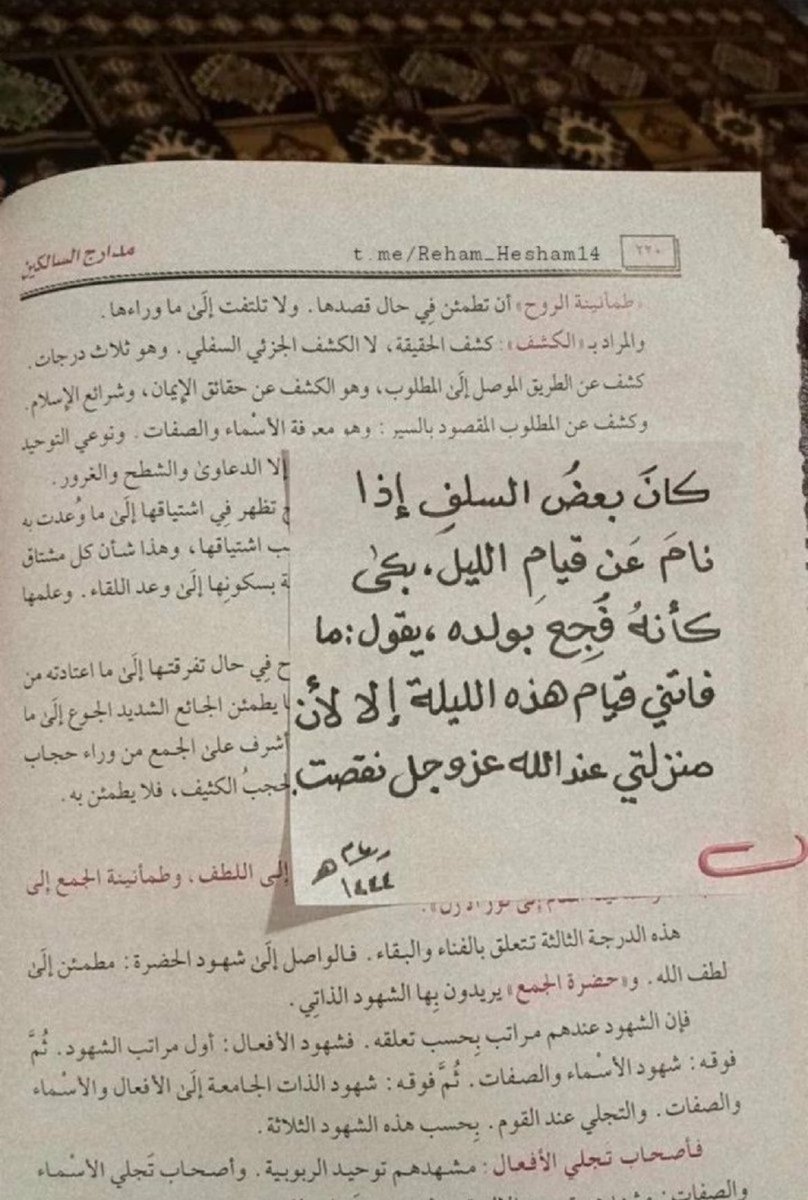 مدارج السالكين
t.me/Reham_Hesham14
٢٢٠
«طمأنينة الروح» أن تطمئن فِي حال قصدها. ولا تلتفت إلَىٰ ما وراءها.
والمراد بـ «الكشف»: كشف الحقيقة، لا الكشف الجزئي السفلي. وهو ثلاث درجات.
كشف عن الطريق الموصل إلَىٰ المطلوب، وهو الكشف عن حقائق الإيمان، وشرائع الإسلام.
وكشف عن المطلوب المقصود بالسير: وهو معرفة الأسْماء والصفات. ونوعي التوحيد
إلا الدعاوىٰ والشطح والغرور.
تظهر فِي اشتياقها إلَىٰ ما وُعدت به
اشتياقها، وهذا شأن كل مشتاق
بسكونِها إلَىٰ وعد اللقاء. وعلمها
فِي حال تفرقتها إلَىٰ ما اعتادته من
يطمئن الجائع الشديد الجوع إلَىٰ ما
أشرف علىٰ الجمع من وراء حجاب
الحجبُ الكثيف، فلا يطمئن به.
كانَ بعضُ السلفِ إذا
نامَ عَن قيامِ الليل، بكىٰ
كأنهُ فُجِعَ بولده، يقول: ما
فاتني قيام هذه الليلة إلا لأن
منزلتي عند الله عزوجل نقصت
١٤٤٤ هـ
إلى اللطف. وطمأنينة الجمع إلى
هذه الدرجة الثالثة تتعلق بالفناء والبقاء. فالواصل إلَىٰ شهود الحضرة: مطمئن إلَىٰ
لطف الله. و«حضرة الجمع» يريدون بِها الشهود الذاتِي.
فإن الشهود عندهم مراتب بِحسب تعلقه. فشهود الأفعال: أول مراتب الشهود. ثُمَّ
فوقه: شهود الأسْماء والصفات. ثُمَّ فوقه: شهود الذات الجامعة إلَىٰ الأفعال والأسْماء
والصفات. والتجلي عند القوم. بِحسب هذه الشهود الثلاثة.
فأصحاب تجلي الأفعال: مشهدهم توحيد الربوبية. وأصحاب تَجلي الأسْماء